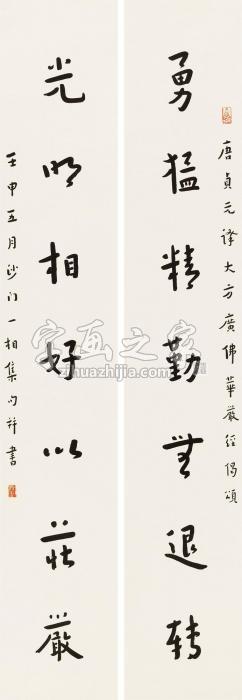 唐貞元譯大方廣佛華嚴經偈頌
勇猛精勤無退轉
光明相好以莊嚴
壬申五月沙門一相集句并書
字画之家
zihuazhijia.com